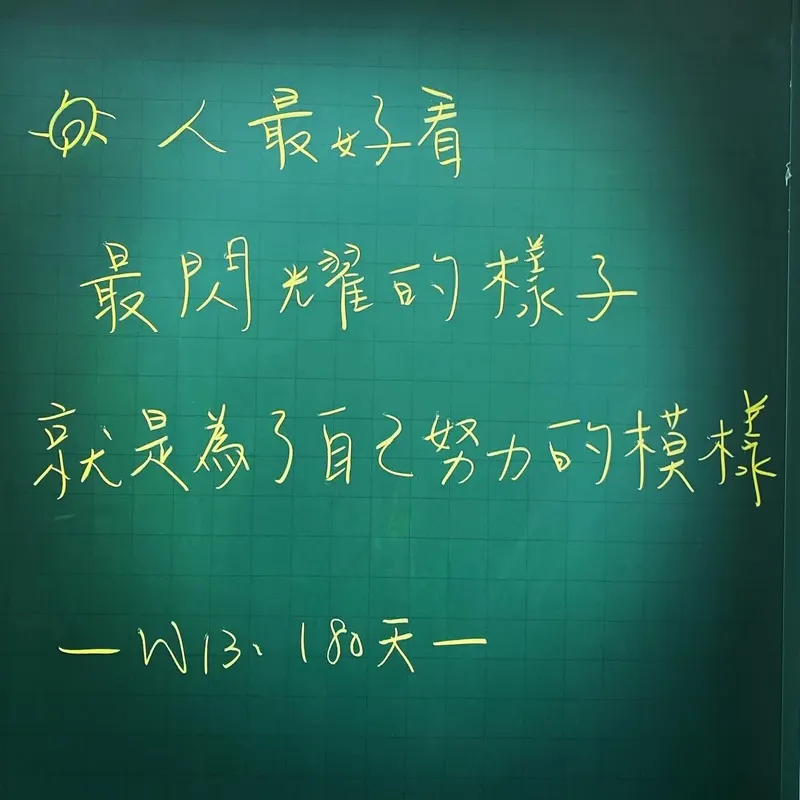 人最好看
最閃耀的樣子
就是為了自己努力的模樣
— W13、180天 —